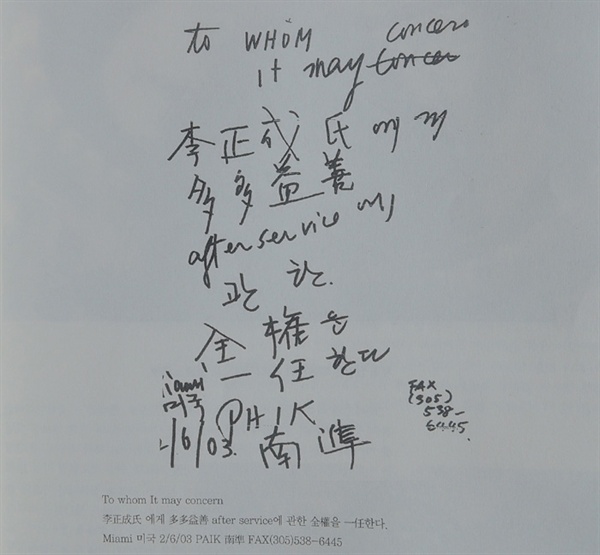 to WHOM concern
it may concer
李正成氏 에게
多多益善
after service 에
관한.
全権은
一任한다
iami
미국 PAIK
2/6/03. 南準
FAX
(305)
538-
6445.
To whom It may concern
李正成氏 에게 多多益善 after service에 관한 全權을 一任한다.
Miami 미국 2/6/03 PAIK 南準 FAX(305)538-6445